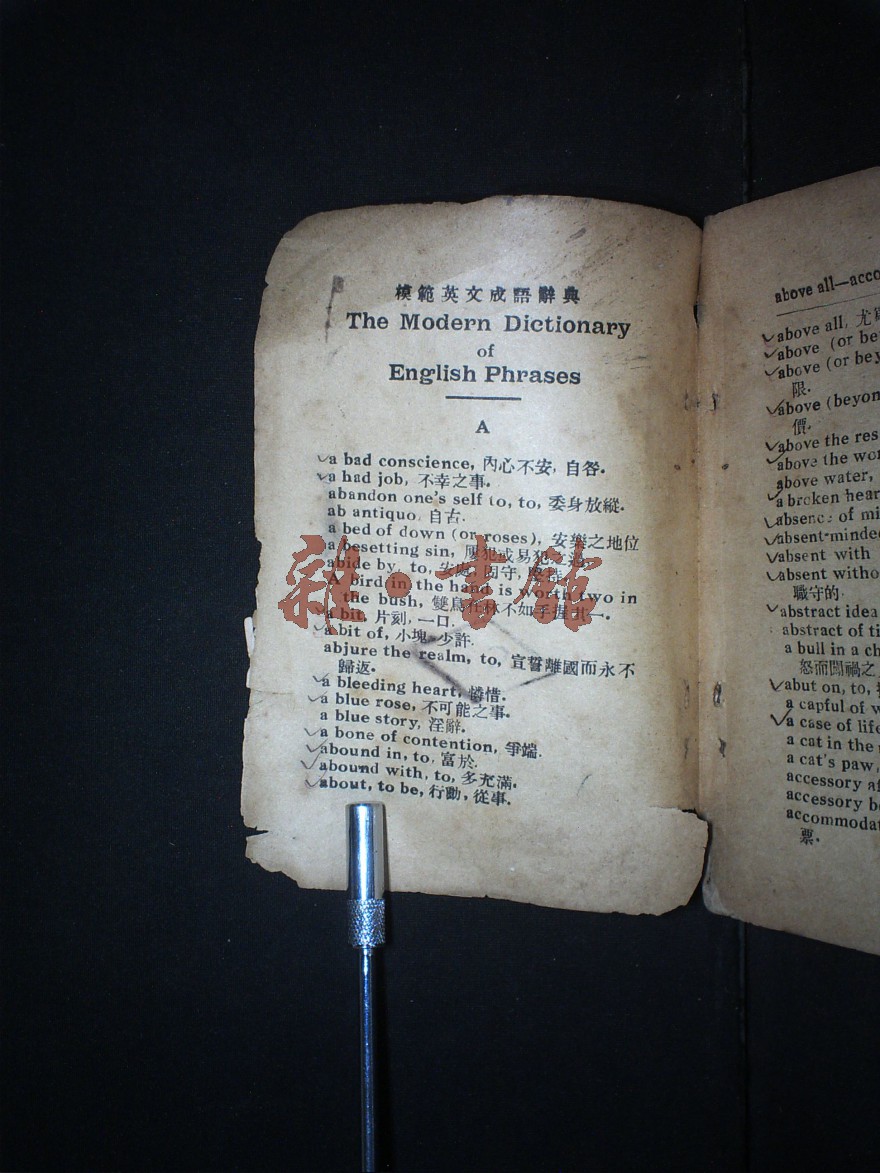 模範英文成語辭典
The Modern Dictionary
of
English Phrases
A
a bad conscience, 內心不安, 自咎.
a bad job, 不幸之事.
abandon one's self to, to, 委身放縱.
ab antiquo, 自古.
a bed of down (or roses), 安樂之地位
a besetting sin, 屢犯或易犯之過.
abide by, to, 固守,
A bird in the hand is worth two in
the bush, 雙鳥在林不如手握其一.
a bit, 片刻, 一口.
a bit of, 小塊, 少許.
abjure the realm, to, 宣誓離國而永不
歸返.
a bleeding heart, 憐惜.
a blue rose, 不可能之事.
a blue story, 淫辭.
a bone of contention, 爭端.
abound in, to, 富於.
abound with, to, 多充滿.
about, to be, 行動, 從事.
雜·書館
above all—acco
above all, 尤
above (or be
above (or bey
限.
above (beyon
價.
above the res
above the wor
above water,
a broken hear
absence of mi
absent-minded
absent with
absent witho
職守的.
abstract idea
abstract of ti
a bull in a ch
怒而闖禍之
abut on, to,
a capful of w
a case of life
a cat in the
a cat's paw,
accessory af
accessory be
accommodat
票.